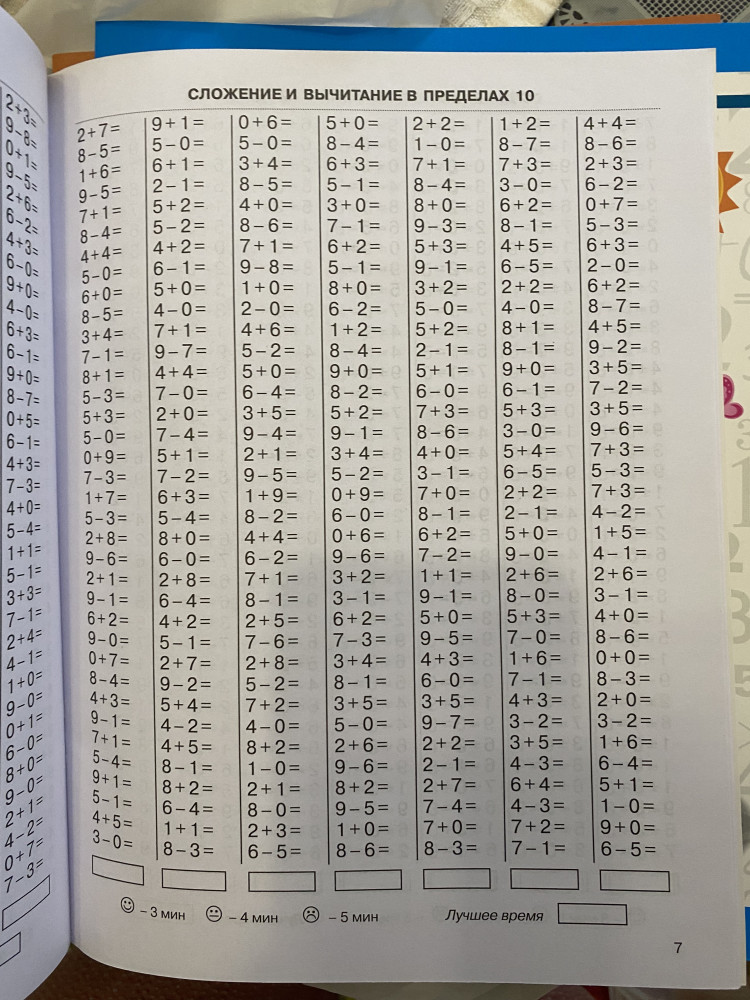 2+3=
9−8=
0+1=
9−5=
2+6=
6−2=
4+3=
6−0=
9+0=
4−0=
6+3=
6−1=
9+0=
8−7=
0+5=
6−1=
4+3=
7−3=
4+0=
5−4=
1+1=
5−1=
3+3=
7−1=
2+4=
4−1=
1+0=
9−0=
0+1=
6−0=
8+0=
9−0=
2+1=
4−2=
0+7=
7−3=
СЛОЖЕНИЕ И ВЫЧИТАНИЕ В ПРЕДЕЛАХ 10
2+7=
8−5=
1+6=
9−5=
7+1=
8−4=
4+4=
5−0=
6+0=
8−5=
3+4=
7−1=
8+1=
5−3=
5+3=
5−0=
0+9=
7−3=
1+7=
5−3=
2+8=
9−6=
2+1=
9−1=
6+2=
9−0=
0+7=
8−4=
4+3=
9−1=
7+1=
5−4=
9+1=
5−1=
4+5=
3−0=
9+1=
5−0=
6+1=
2−1=
5+2=
5−2=
4+2=
6−1=
5+0=
4−0=
7+1=
9−7=
4+4=
7−0=
2+0=
7−4=
5+1=
7−2=
6+3=
5−4=
8+0=
6−0=
2+8=
6−4=
4+2=
5−1=
2+7=
9−2=
5+4=
4−2=
4+5=
8−1=
8+2=
6−4=
1+1=
8−3=
0+6=
5−0=
3+4=
8−5=
4+0=
8−6=
7+1=
9−8=
1+0=
2−0=
4+6=
5−2=
5+0=
6−4=
3+5=
9−4=
2+1=
9−5=
1+9=
8−2=
4+4=
6−2=
7+1=
8−1=
2+5=
7−6=
2+8=
5−2=
7+2=
4−0=
8+2=
1−0=
2+1=
8−0=
2+3=
6−5=
5+0=
8−4=
6+3=
5−1=
3+0=
7−1=
6+2=
5−1=
8+0=
6−2=
1+2=
8−4=
9+0=
8−2=
5+2=
9−1=
3+4=
5−2=
0+9=
6−0=
0+6=
9−6=
3+2=
3−1=
6+2=
7−3=
3+4=
8−1=
3+5=
5−0=
2+6=
9−6=
8+2=
9−5=
1+0=
8−6=
2+2=
1−0=
7+1=
8−4=
8+0=
9−3=
5+3=
9−1=
3+2=
5−0=
5+2=
2−1=
5+1=
6−0=
7+3=
8−6=
4+0=
3−1=
7+0=
8−1=
6+2=
7−2=
1+1=
9−1=
5+0=
9−5=
4+3=
6−0=
3+5=
9−7=
2+2=
2−1=
2+7=
7−4=
7+0=
8−3=
1+2=
8−7=
7+3=
3−0=
6+2=
8−1=
4+5=
6−5=
2+2=
4−0=
8+1=
8−1=
9+0=
6−1=
5+3=
3−0=
5+4=
6−5=
2+2=
2−1=
5+0=
9−0=
2+6=
8−0=
5+3=
7−0=
1+6=
7−1=
4+3=
3−2=
3+5=
4−3=
6+4=
4−3=
7+2=
7−1=
4+4=
8−6=
2+3=
6−2=
0+7=
5−3=
6+3=
2−0=
6+2=
8−7=
4+5=
9−2=
3+5=
7−2=
3+5=
9−6=
7+3=
5−3=
7+3=
4−2=
1+5=
4−1=
2+6=
3−1=
4+0=
8−6=
0+0=
8−3=
2+0=
3−2=
1+6=
6−4=
5+1=
1−0=
9+0=
6−5=
– 3 мин – 4 мин – 5 мин Лучшее время
7